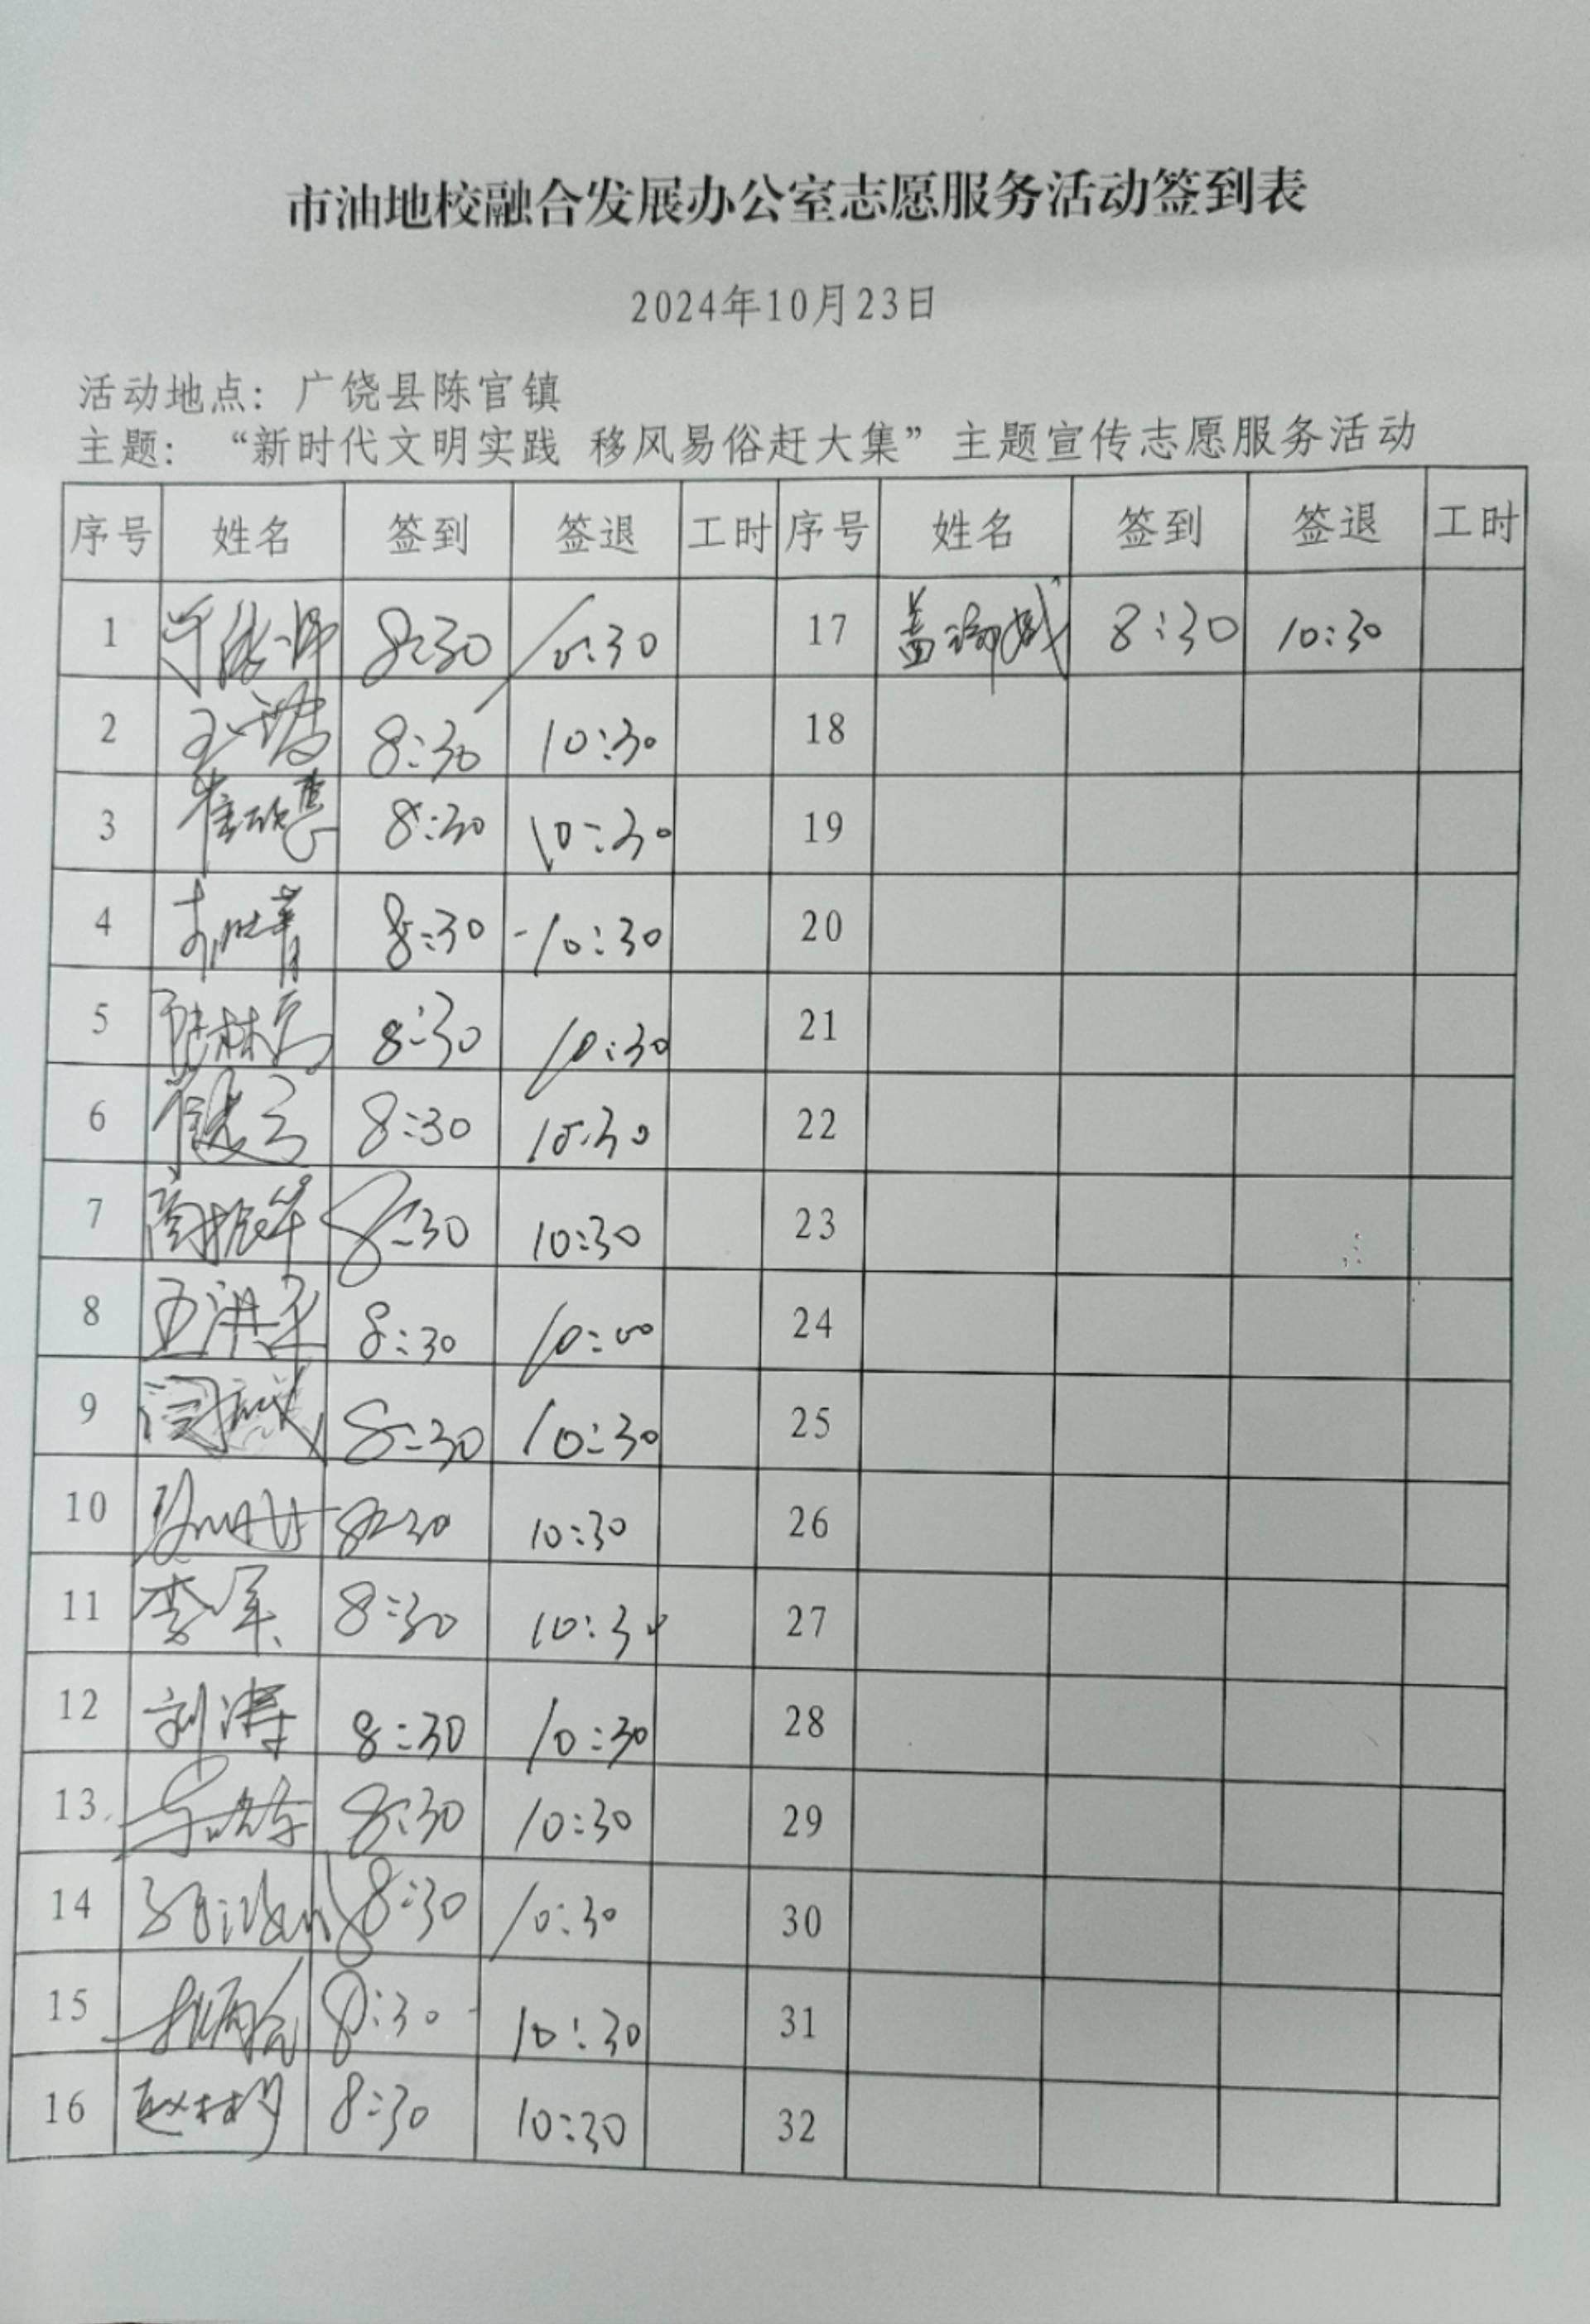 市油地校融合发展办公室志愿服务活动签到表
2024年10月23日
活动地点：广饶县陈官镇
主题：“新时代文明实践 移风易俗赶大集”主题宣传志愿服务活动
序号 姓名 签到 签退 工时 序号 姓名 签到 签退 工时
1 8:30 10:30 17 8:30 10:30
2 8:30 10:30 18
3 8:30 10:30 19
4 8:30 10:30 20
5 8:30 10:30 21
6 8:30 10:30 22
7 8:30 10:30 23
8 8:30 10:00 24
9 8:30 10:30 25
10 8:30 10:30 26
11 李军 8:30 10:30 27
12 刘涛 8:30 10:30 28
13 8:30 10:30 29
14 8:30 10:30 30
15 8:30 10:30 31
16 8:30 10:30 32